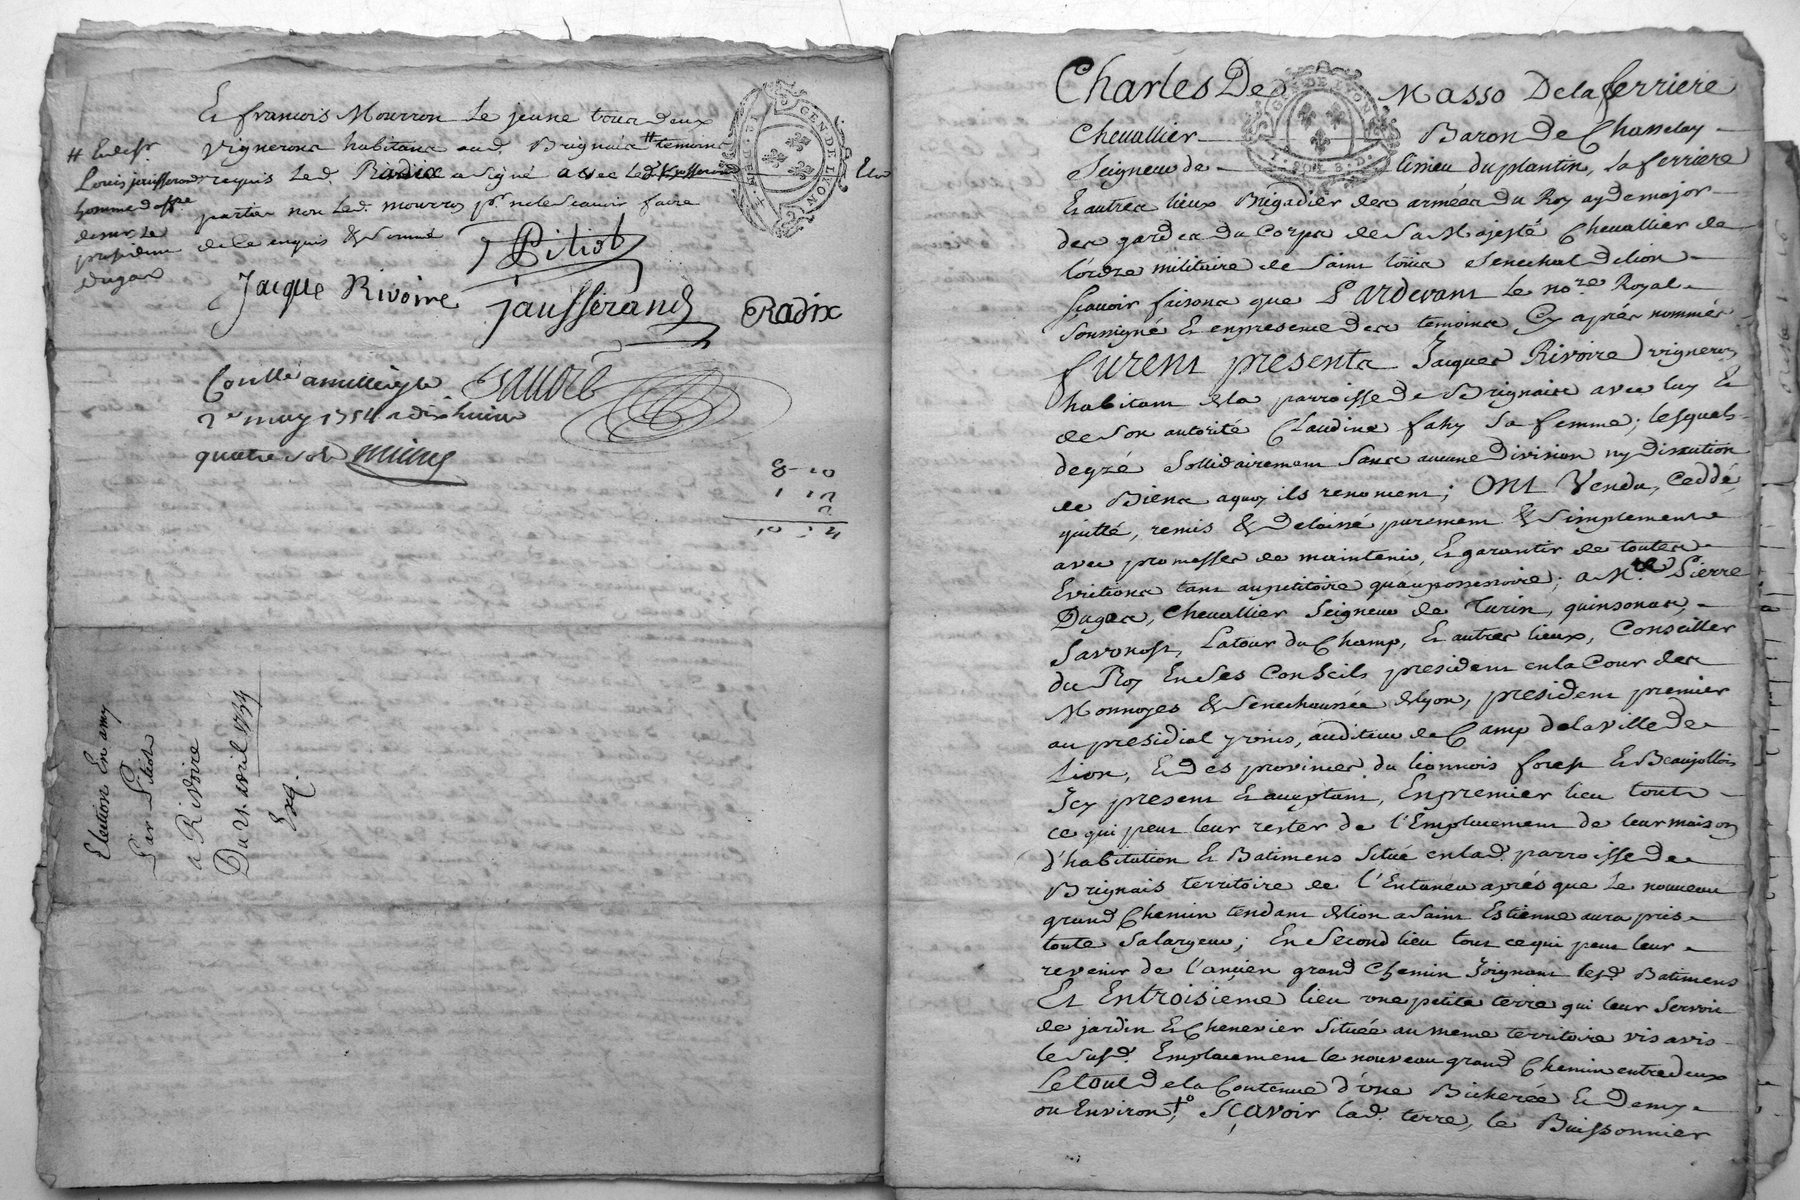 Et francois Mourron Le jeune tous deux
vignerons habitans aud. Brignais # temoins
requis Led. Radix a signé avec Led. Jausserand Et les
parties non Led. mourron pr. ne le scavoir faire
de ce enquis & sommé
# Et de sr.
Louis jausserand
homme d'affre
de mr Le
president
Dugas
Pitiot
Jacque Rivoire
Jausserand
Radix
2e may 1754
quatre sols
8-10
10 - 4
Election En amy
Par Pitiot
a Rivoire
Du 21 avril 1754
Exq.
GEN. DE LYON
Charles De Masso De la ferriere
Chevallier Baron de Chasselay
Seigneur de limeu du plantin, la ferriere
Et autres lieux Brigadier des armées du Roy aydemajor
des gardes du Corps de Sa Majesté Chevallier de
l'ordre militaire de Saint loüis Senechal de lion
Sçavoir faisons que Pardevant Le nore Royal
Soussigné Et en presence des temoins Cy aprés nommés
furent presents Jacques Rivoire vigneron
habitant de la parroisse de Brignais avec luy Et
de Son autorité Claudine fahy Sa femme; lesquels
de gré Sollidairement Sans aucune division ny discution
de Biens a quoy ils renoncent; Ont Vendu, Ceddé,
quitté, remis & delaissé purement & Simplement
avec promesses de maintenir Et garantir de toutes
Evictions tant au petitoire qu'au possessoire; a Mre Pierre
Dugas, Chevallier Seigneur de Turin, quinsonas,
Savonost, Latour du Champ, Et autres lieux, Conseiller
du Roy En Ses Conseils president en la Cour des
Monnoyes & Senechaussée de lyon, president premier
au presidial y reuni, auditeur de Camp de la ville de
Lion, Et des provinces du lionnois forest Et Beaujollois
Icy present Et acceptant, En premier lieu tout
ce qui peut leur rester de l'Emplacement de leur maison
d'habitation Et Batimens Situé en lad. parroisse de
Brignais territoire de l'Entancu aprés que Le nouveau
grand Chemin tendant de lion a Saint Estienne aura pris
toute Sa largeur; En Second lieu tout ce qui peut leur
revenir de l'ancien grand Chemin Joignant lesd. Batimens
Et En troisieme lieu une petite terre qui leur Servoit
de jardin Et Chenevier Située au meme territoire vis avis
le susd. Emplacement le nouveau grand Chemin entre deux
Le tout de la Contenue d'une Bicherée Et Demy
ou Environ; Sçavoir lad. terre, le Buissonnier